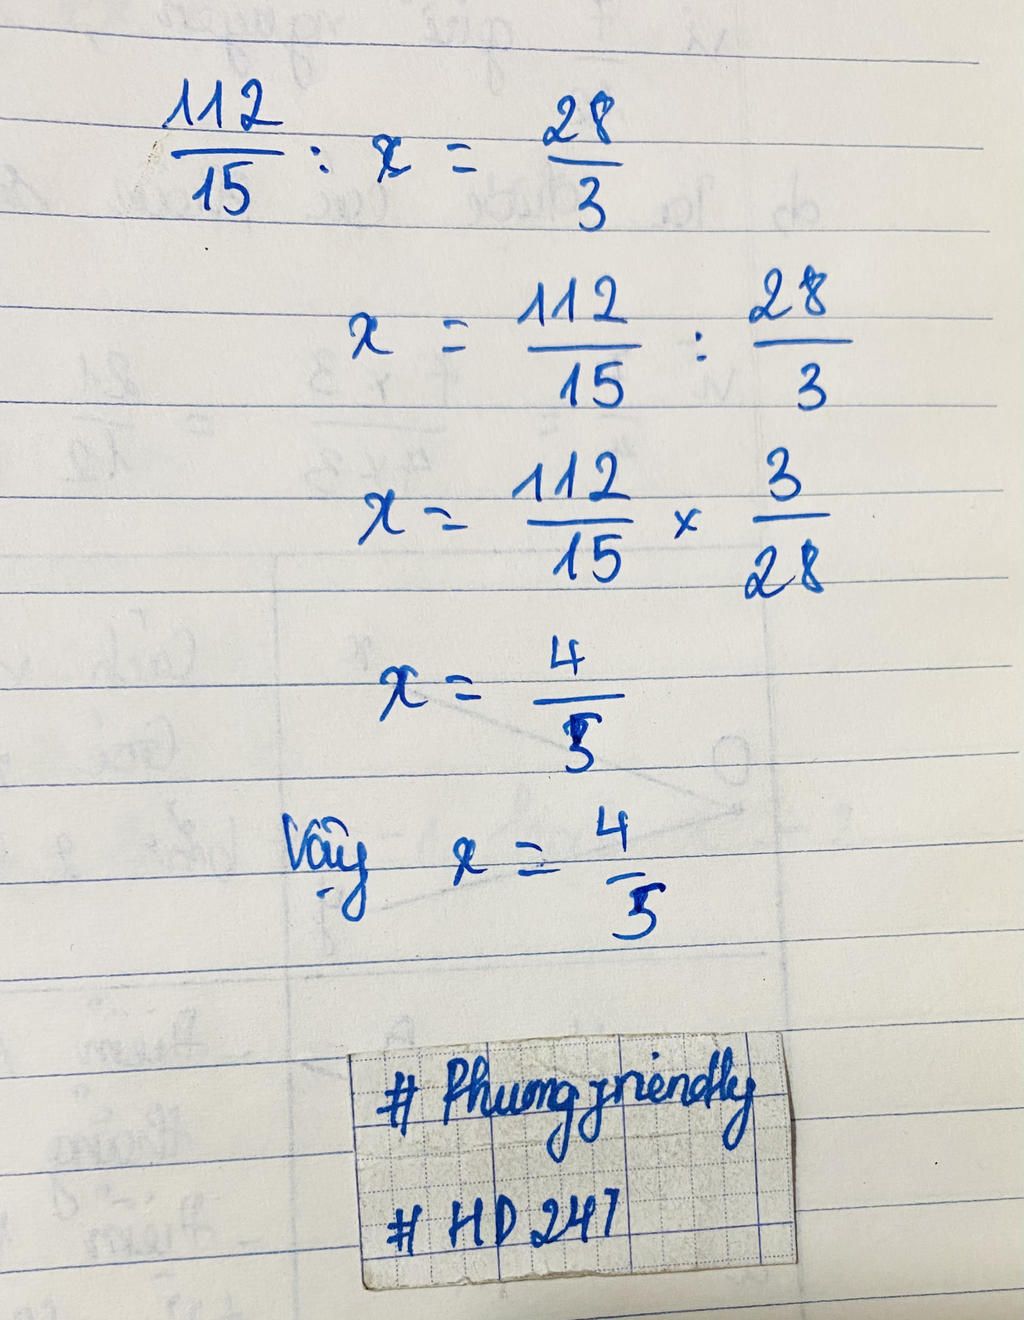 112/15 : x = 28/3
x = 112/15 : 28/3
x = 112/15 × 3/28
x = 4/5
Vậy x = 4/5
# Phuongfriendly
# HD 247